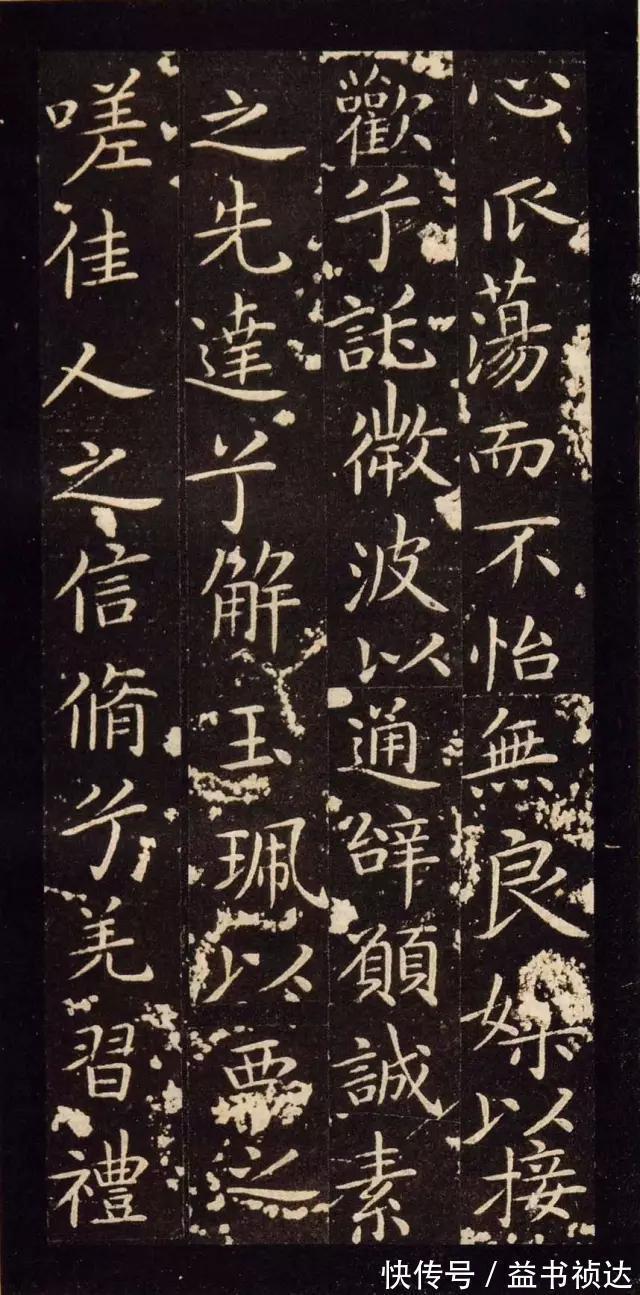 心振蕩而不怡無良媒以接
歡兮託微波以通辭願誠素
之先達兮解玉珮以要之
嗟佳人之信脩兮羌習禮
快传号 / 益书祯达